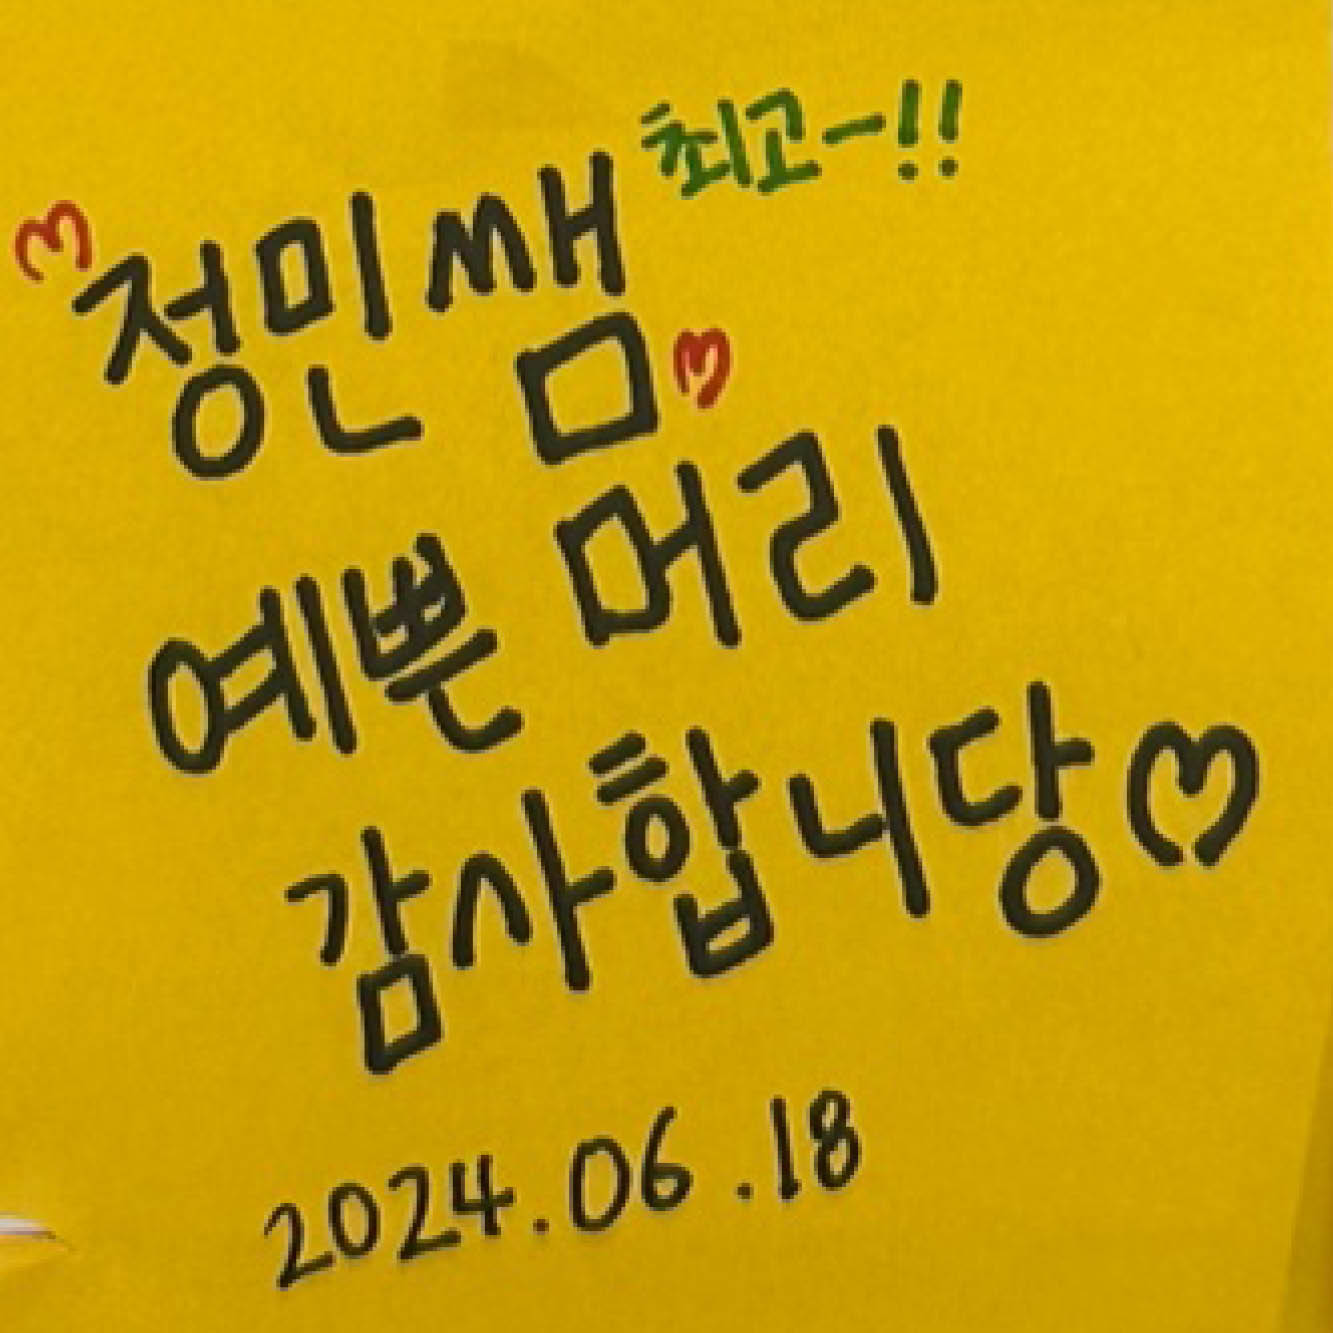 최고-!!
♡정민쌤♡
예쁜 머리
감사합니당♡
2024.06.18